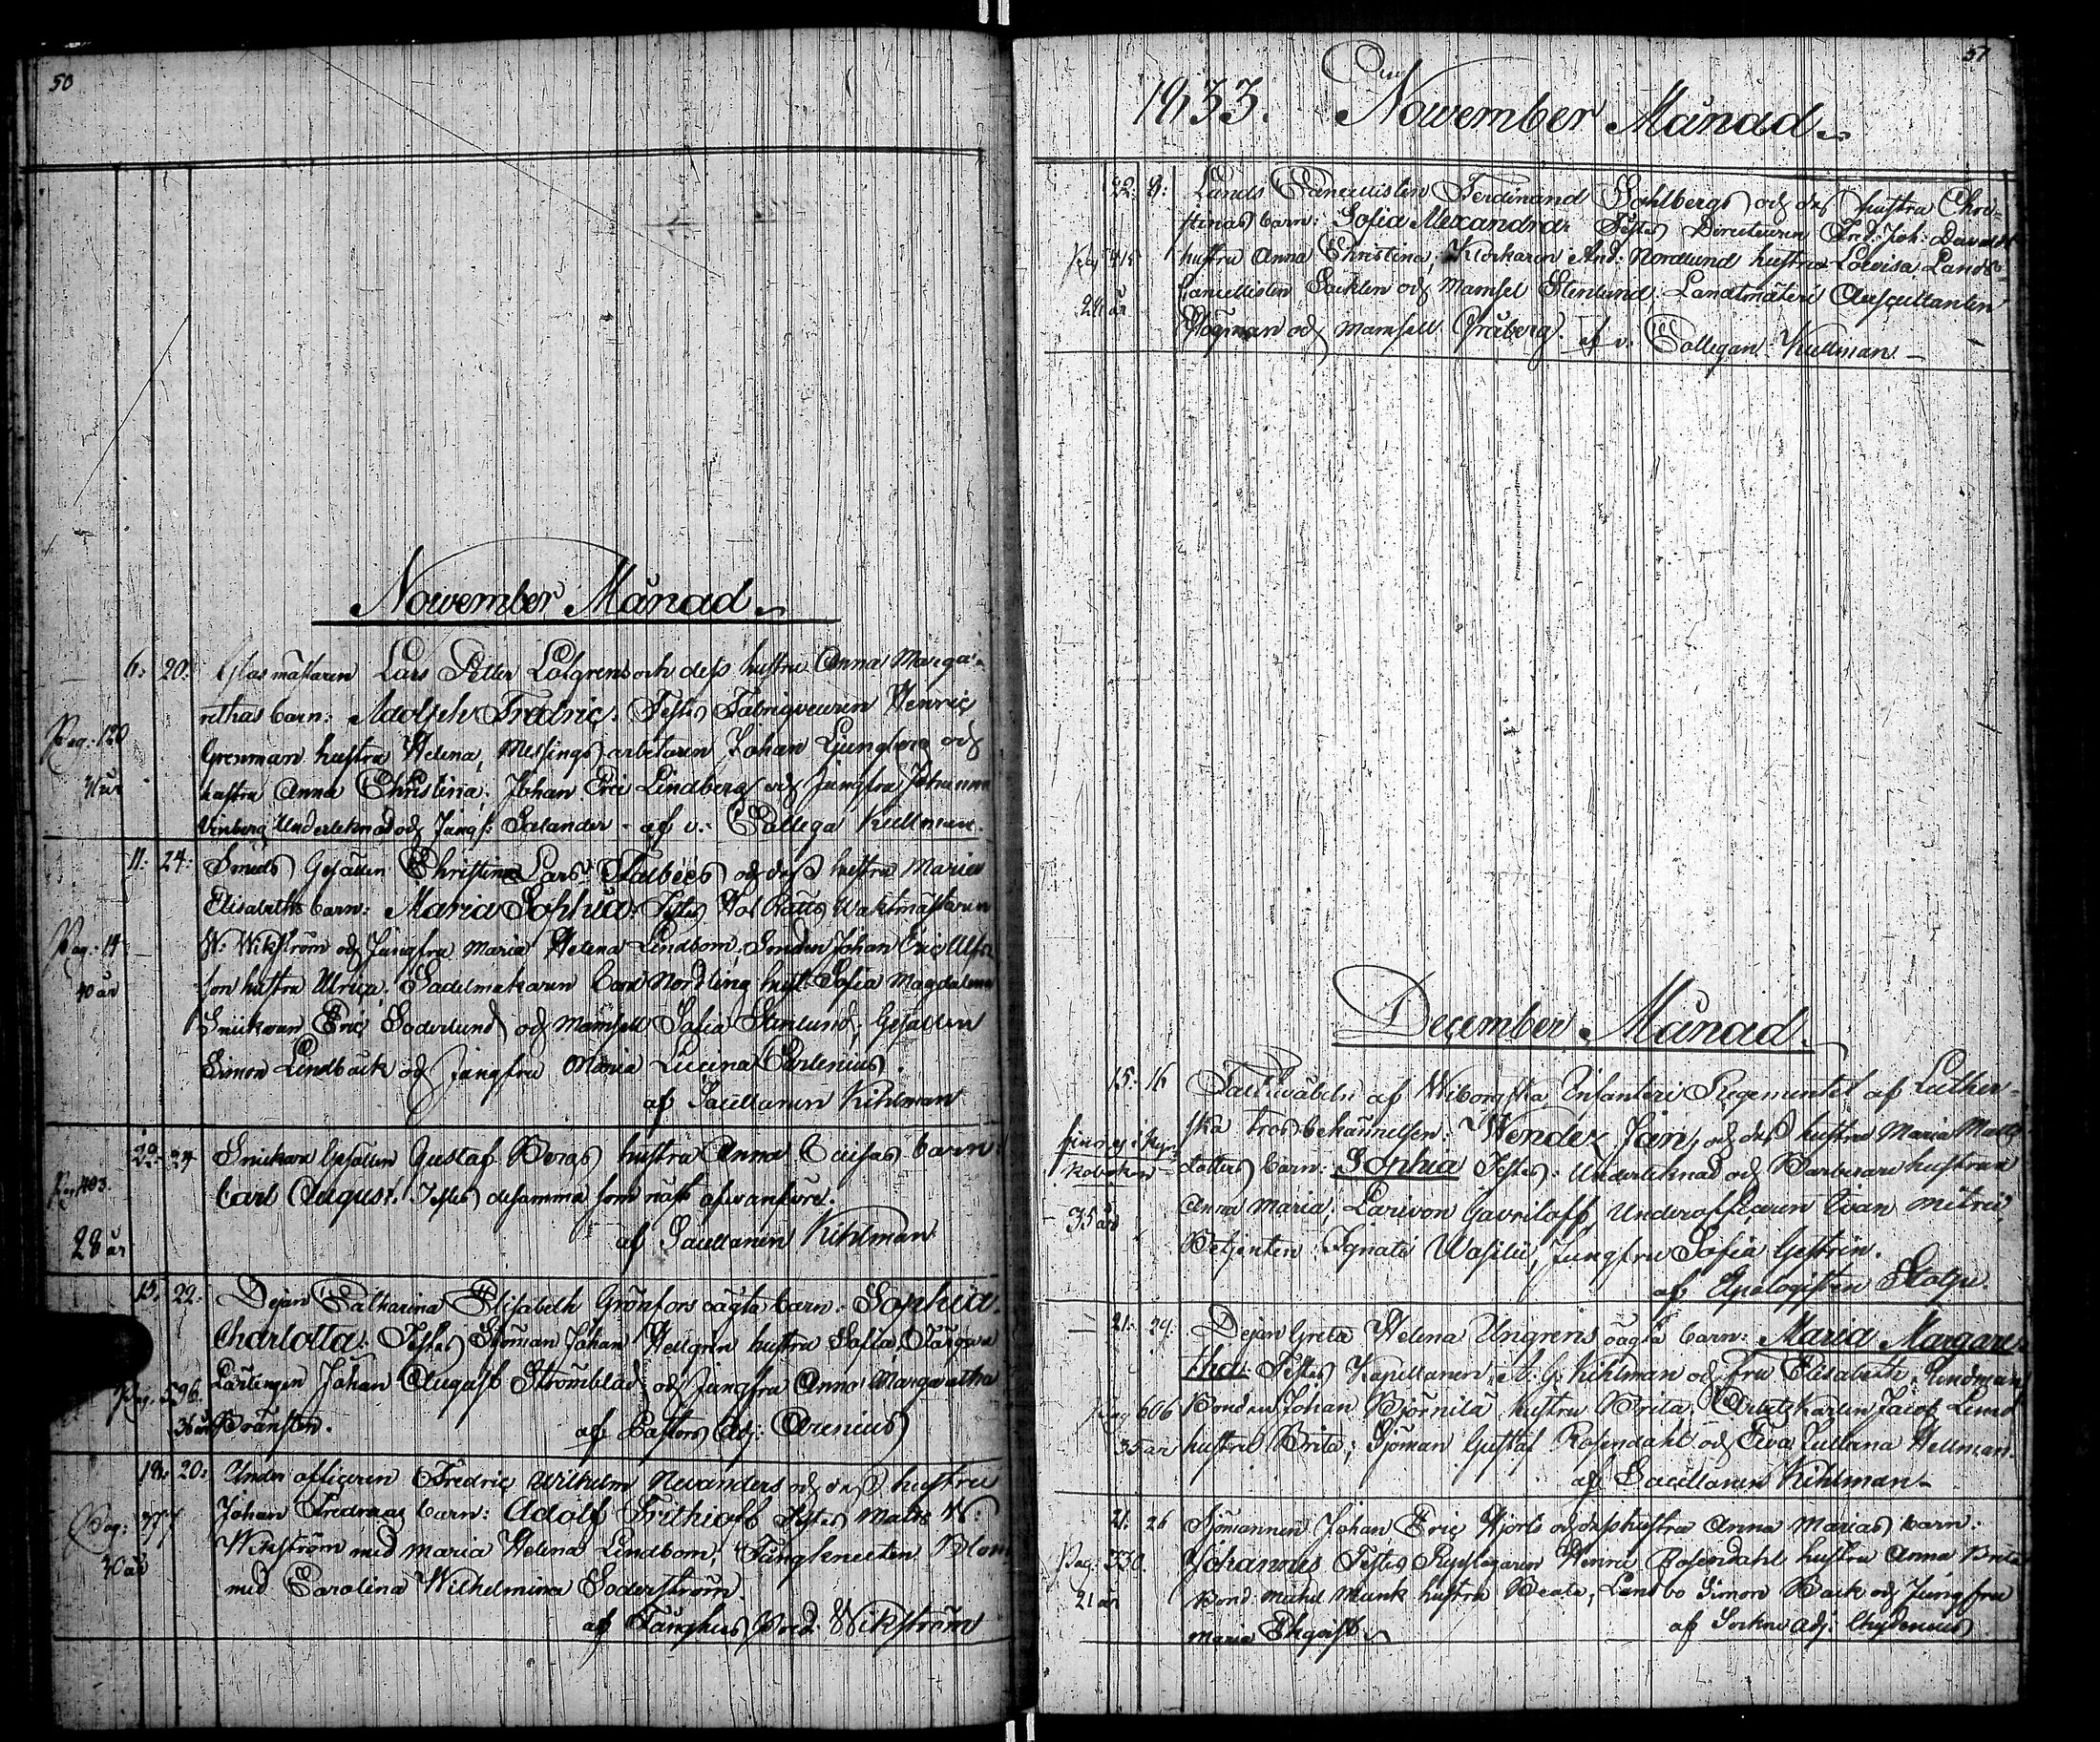 50
November Månad
6: 20: Glasmästaren Lars Petter Löfgrens och dess hustru Anna Marga-
Pag: 120 rethas barn: Adolph Fredric. Testes Fabriqueuren Henric
Grenman hustru Helena, Messings arbetaren Johan Ljungberg och
hustru Anna Christina; Johan Eric Lindberg och Jungfru Johanna
Vinberg Underlöknad och Jungf: Salander - af v. Collega Kullman.
11: 24: Smeds Gesällen Christian Lars Talbécs och dess hustru Maria
Elisabeths barn: Maria Sophia: Testes Hof Rätts Waktmästaren
Pag: 14 W: Wikström och Jungfru Maria Helena Lindbom, Smeden Johan Eric Ulfs-
40 år son hustru Ulrica. Sadelmakaren Carl Nordling hust: Sofia Magdalena
Snickaren Eric Söderlund och Mamsell Sofia Stenlund; Gesällen
Simon Lindbäck och Jungfru Maria Lucina
af Sacellanen Kihlman
24 Snickare Gesällen Gustaf Bergs hustru Anna Caisas barn:
Pag 403. Carl August. Testes desamma som näst ofvanföre.
28 år af Sacellanen Kihlman
15. 22: Pejan Catharina Elisabeth Grönfors oägta barn: Sophia
Charlotta: Testes Sjöman Johan Hellgren hustru Sofia, Färgare
Pag. 596. Lärlingen Johan August Strömblad och Jungfru Anna Margaretha
36 år Bränsten. af Pastors Adj: Arenius
18: 20: Under officeren Fredric Wilhelm Nevanders och dess hustru
Pag: 377 Johan Fredricas barn: Adolf Frithiof Testes W:
40 år Wikström med Maria Helena Lindbom; Fångknekten Blom
med Carolina Wilhelmina Söderström.
af Fånghus Pred: Wikström
51
1833. November Månad
22: 3: Lands Cancellisten Ferdinand Sahlbergs och dess hustru Chri-
stinas barn: Sofia Alexandra. Testes Directeuren Fred: Joh:
Pag 415 hustru Anna Christina; Klockaren And: Nordlund hustru Lovisa Lands-
24 år Cancellisten Sacklen och Mamsel Stenlund. Landtmäteri Auscultanten
Högman och Mamsell Gråberg. af v: Collegan Kullman
December Månad.
15: 16 Fältväbeln af Wiborgska Infanteri Regementet af Luther-
ska tros bekännelsen: Wendez Jan, och dess hustru Maria Matts
dotters barn: Sophia Testes: Underlöknad och Barberare hustrun
35 år Anna Maria; Larivon Gavriloff, Underofficeren Ivan Mitrei,
Betjenten: Ignati Wasilii, Jungfru Sofia Gestrin.
af Apologisten Stolpe.
21: 29: Pejan Greta Helena Ungrens oägta barn: Maria Margare-
tha. Testes Kapellanen A. G. Kihlman och fru Elisabeth Lindman
Pag 606 Bonden Johan Björnila hustru Brita; Arbetskarlen Jacob Lund
35 år hustru Brita; Sjöman Gustaf Rosendahl och Eva Juliana Hellman.
af Sacellanen Kihlman
21: 26 Sjömannen Johan Eric Hjorts och dess hustru Anna Marias barn:
Pag: 330. Johannes Testes Repslagaren Henric Rosendahl hustru Anna Brita
21 år Bond: Michel Munk hustru Beata; Landbo Simon Back och Jungfru
Maria af Sockne Adj: Chydenius